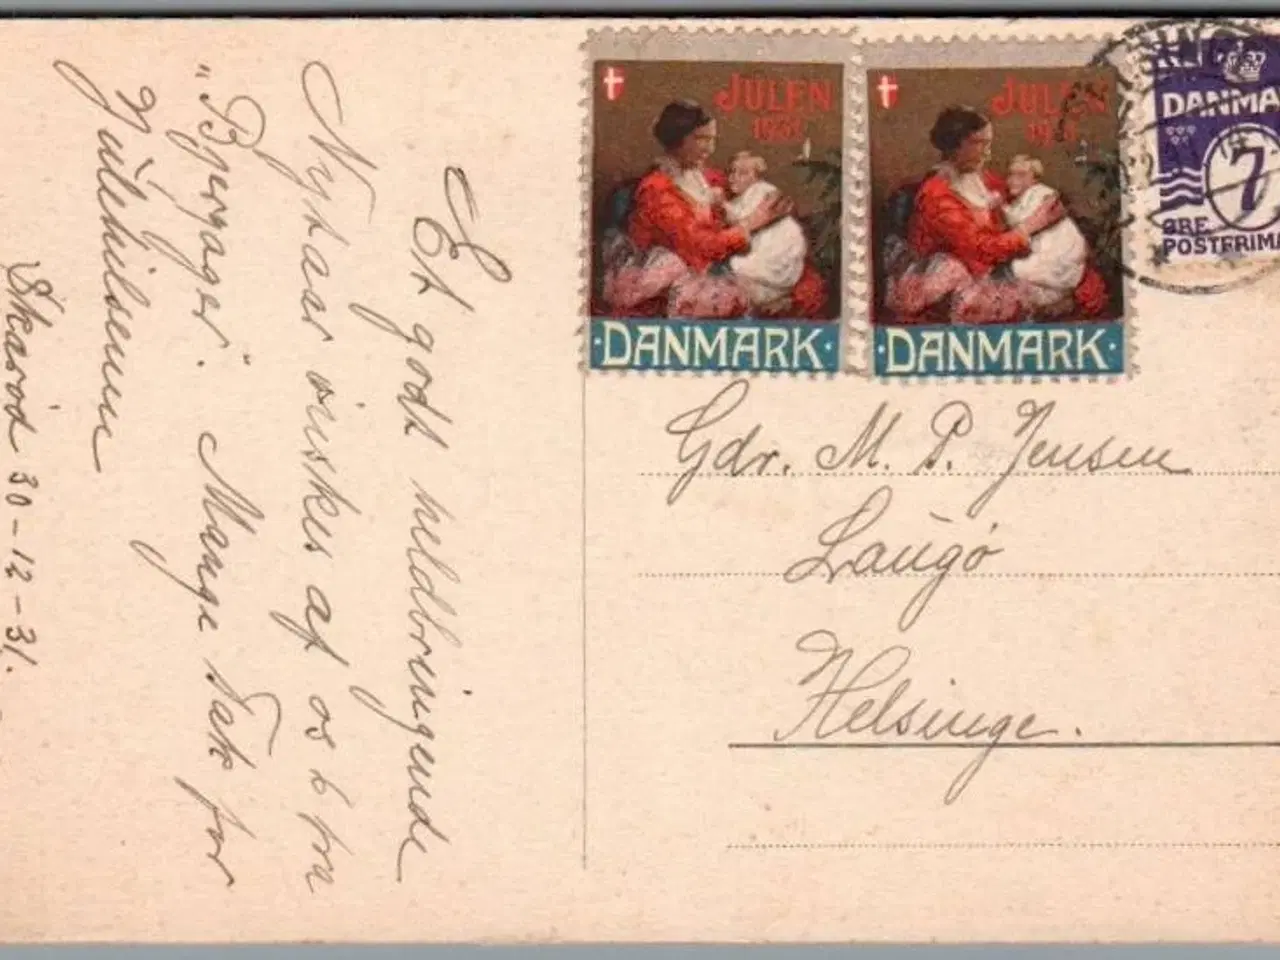 Et godt heldbringende
Nytaar ønskes af os 6 fra
"Bjergager". Mange Tak for
Julehilsenen
Skærød 30-12-31.
JULEN
1931
DANMARK
JULEN
DANMARK
DANMA
7
ØRE
POSTFRIMA
Gdr. M. P. Jensen
Laugø
Helsinge.